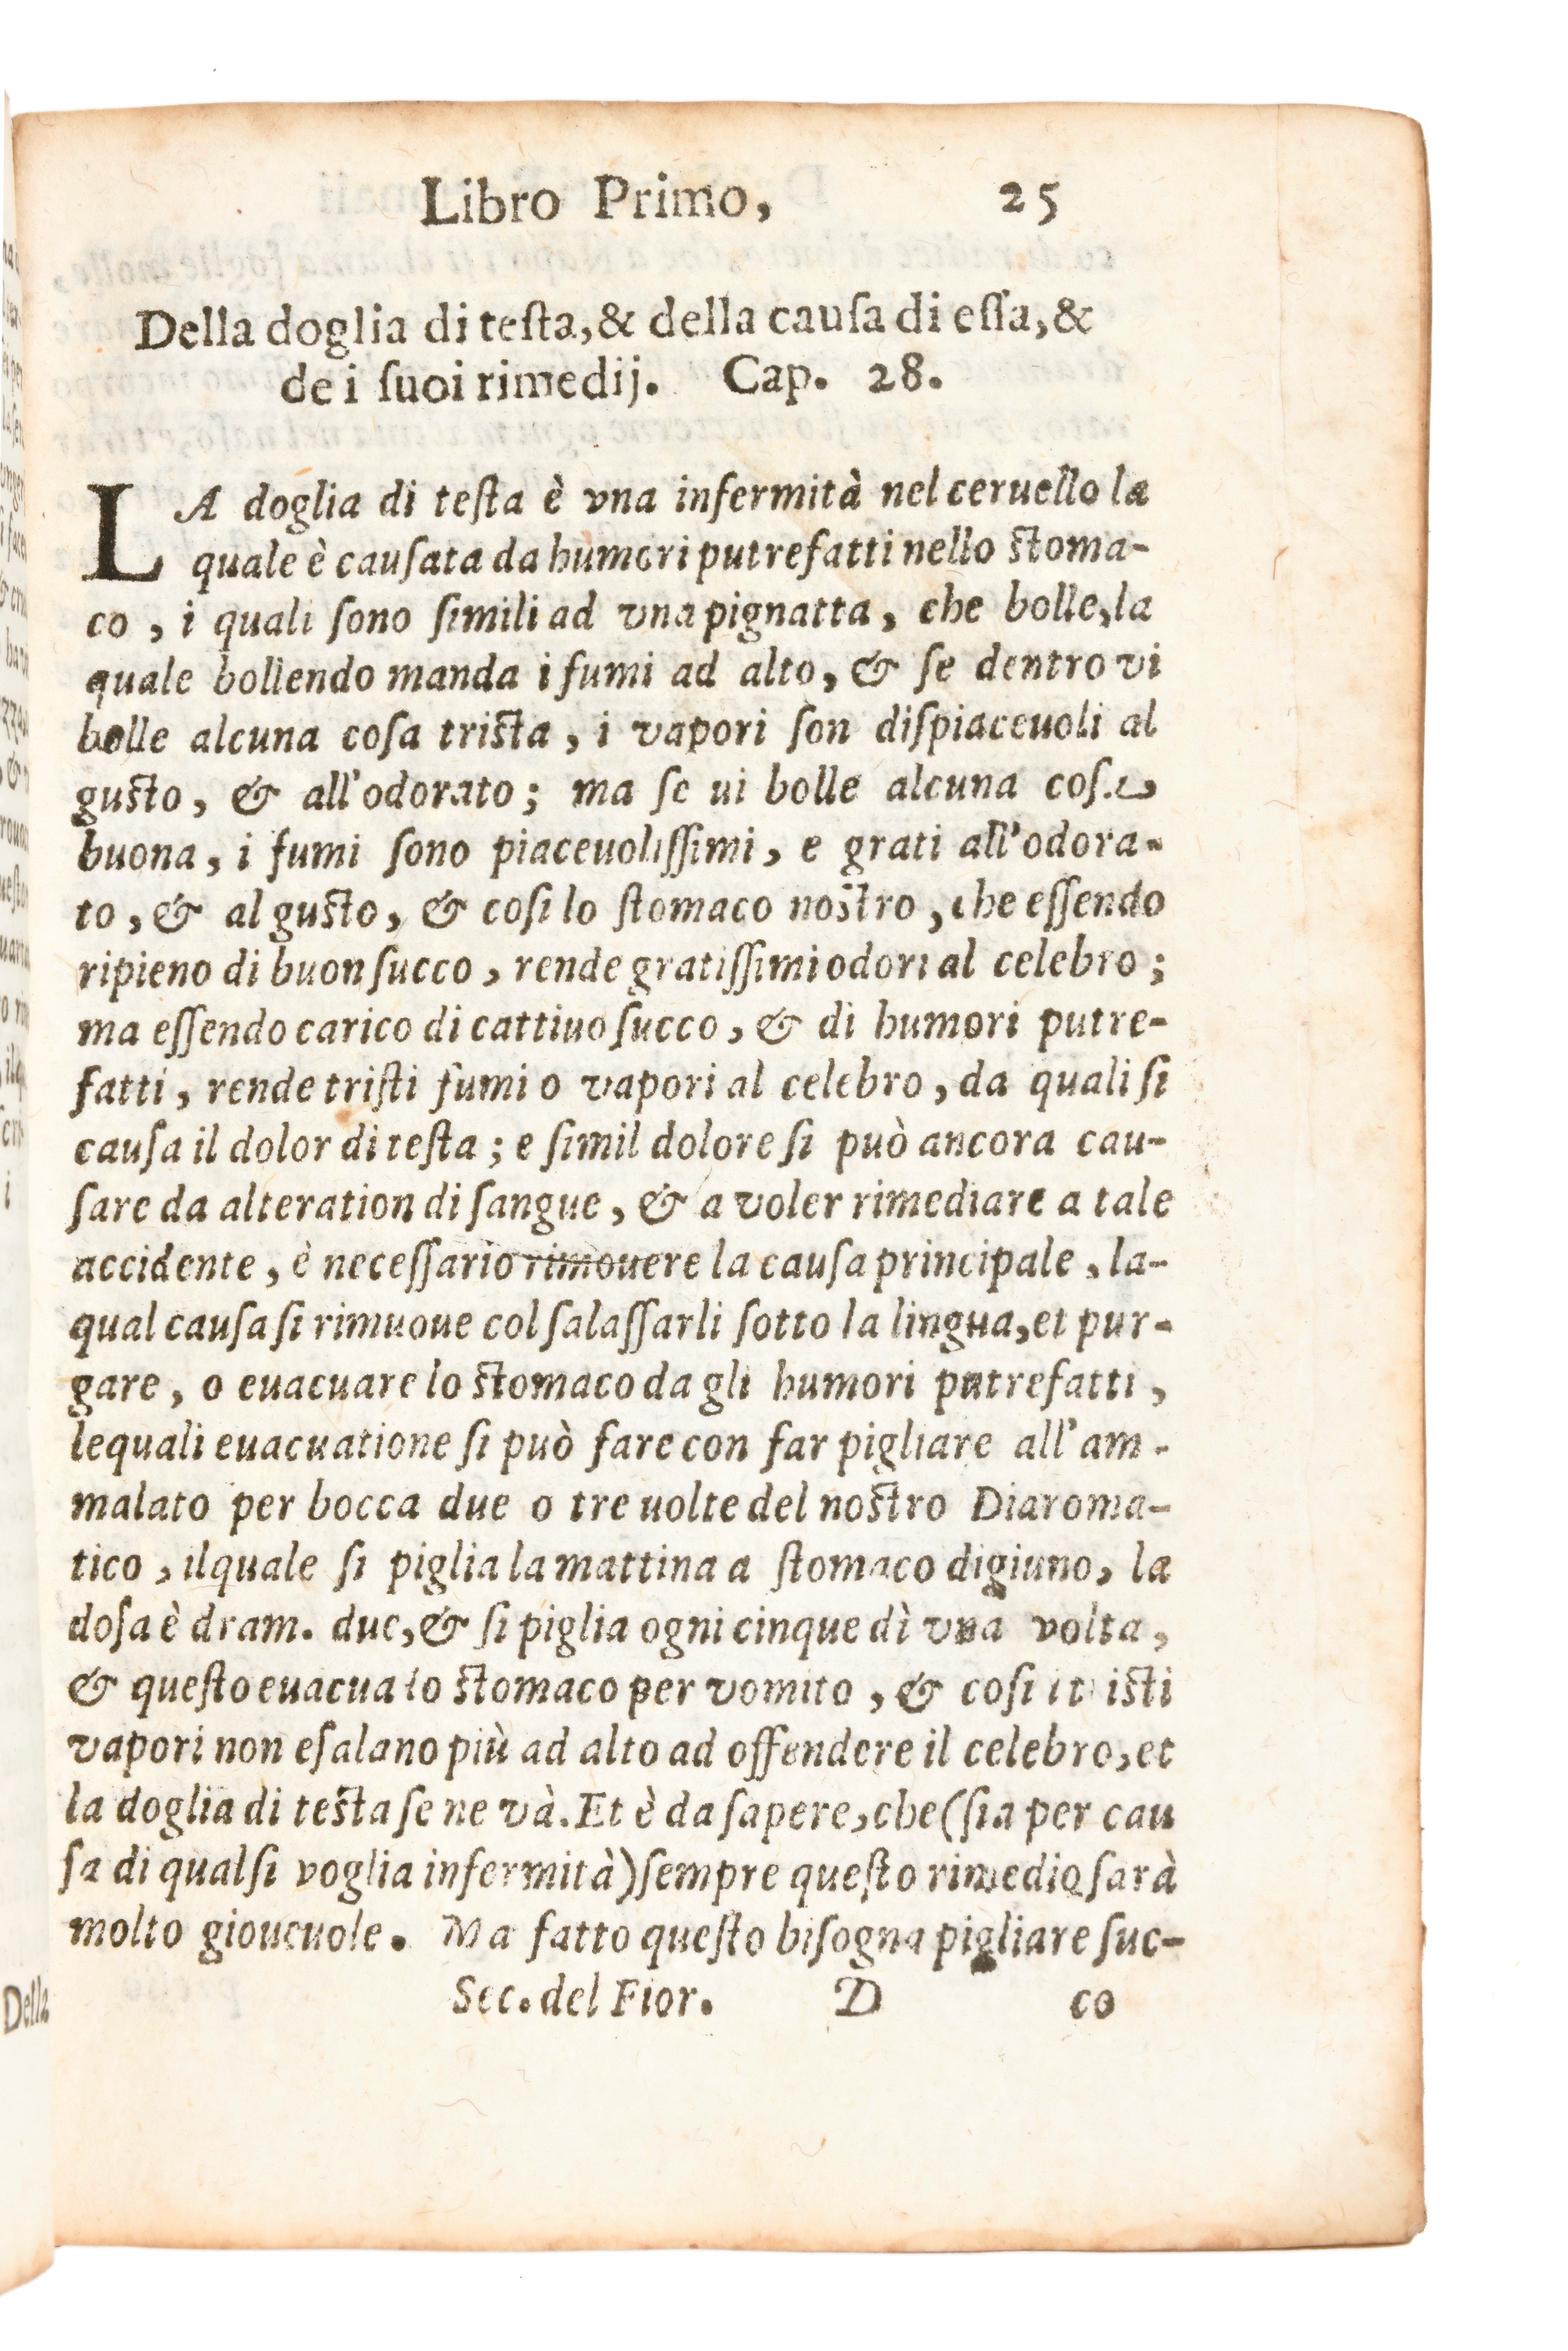 Libro Primo, 25
Della doglia di teſta, & della cauſa di eſſa, &
de i ſuoi rimedij. Cap. 28.
LA doglia di teſta è vna infermità nel ceruello la
quale è cauſata da humori putrefatti nello ſtoma-
co, i quali ſono ſimili ad vna pignatta, che bolle, la
quale bollendo manda i fumi ad alto, & ſe dentro vi
bolle alcuna coſa triſta, i vapori ſon diſpiaceuoli al
guſto, & all'odorato; ma ſe ui bolle alcuna coſa
buona, i fumi ſono piaceuoliſſimi, e grati all'odora-
to, & al guſto, & coſi lo ſtomaco noſtro, che eſſendo
ripieno di buon ſucco, rende gratiſſimi odori al celebro;
ma eſſendo carico di cattiuo ſucco, & di humori putre-
fatti, rende triſti fumi o vapori al celebro, da quali ſi
cauſa il dolor di teſta; e ſimil dolore ſi può ancora cau-
ſare da alteration di ſangue, & a voler rimediare a tale
accidente, è neceſſario rimouere la cauſa principale, la-
qual cauſa ſi rimuoue col ſalaſſarli ſotto la lingua, et pur-
gare, o euacuare lo ſtomaco da gli humori putrefatti,
lequali euacuatione ſi può fare con far pigliare all'am-
malato per bocca due o tre uolte del noſtro Diaroma-
tico, ilquale ſi piglia la mattina a ſtomaco digiuno, la
doſa è dram. due, & ſi piglia ogni cinque dì vna volta,
& queſto euacua lo ſtomaco per vomito, & coſi i triſti
vapori non eſalano più ad alto ad offendere il celebro, et
la doglia di teſta ſe ne và. Et è da ſapere, che (ſia per cau
ſa di qualſi voglia infermità) ſempre queſto rimedio ſarà
molto gioueuole. Ma fatto queſto biſogna pigliare ſuc-
Sec. del Fior. D co
Della